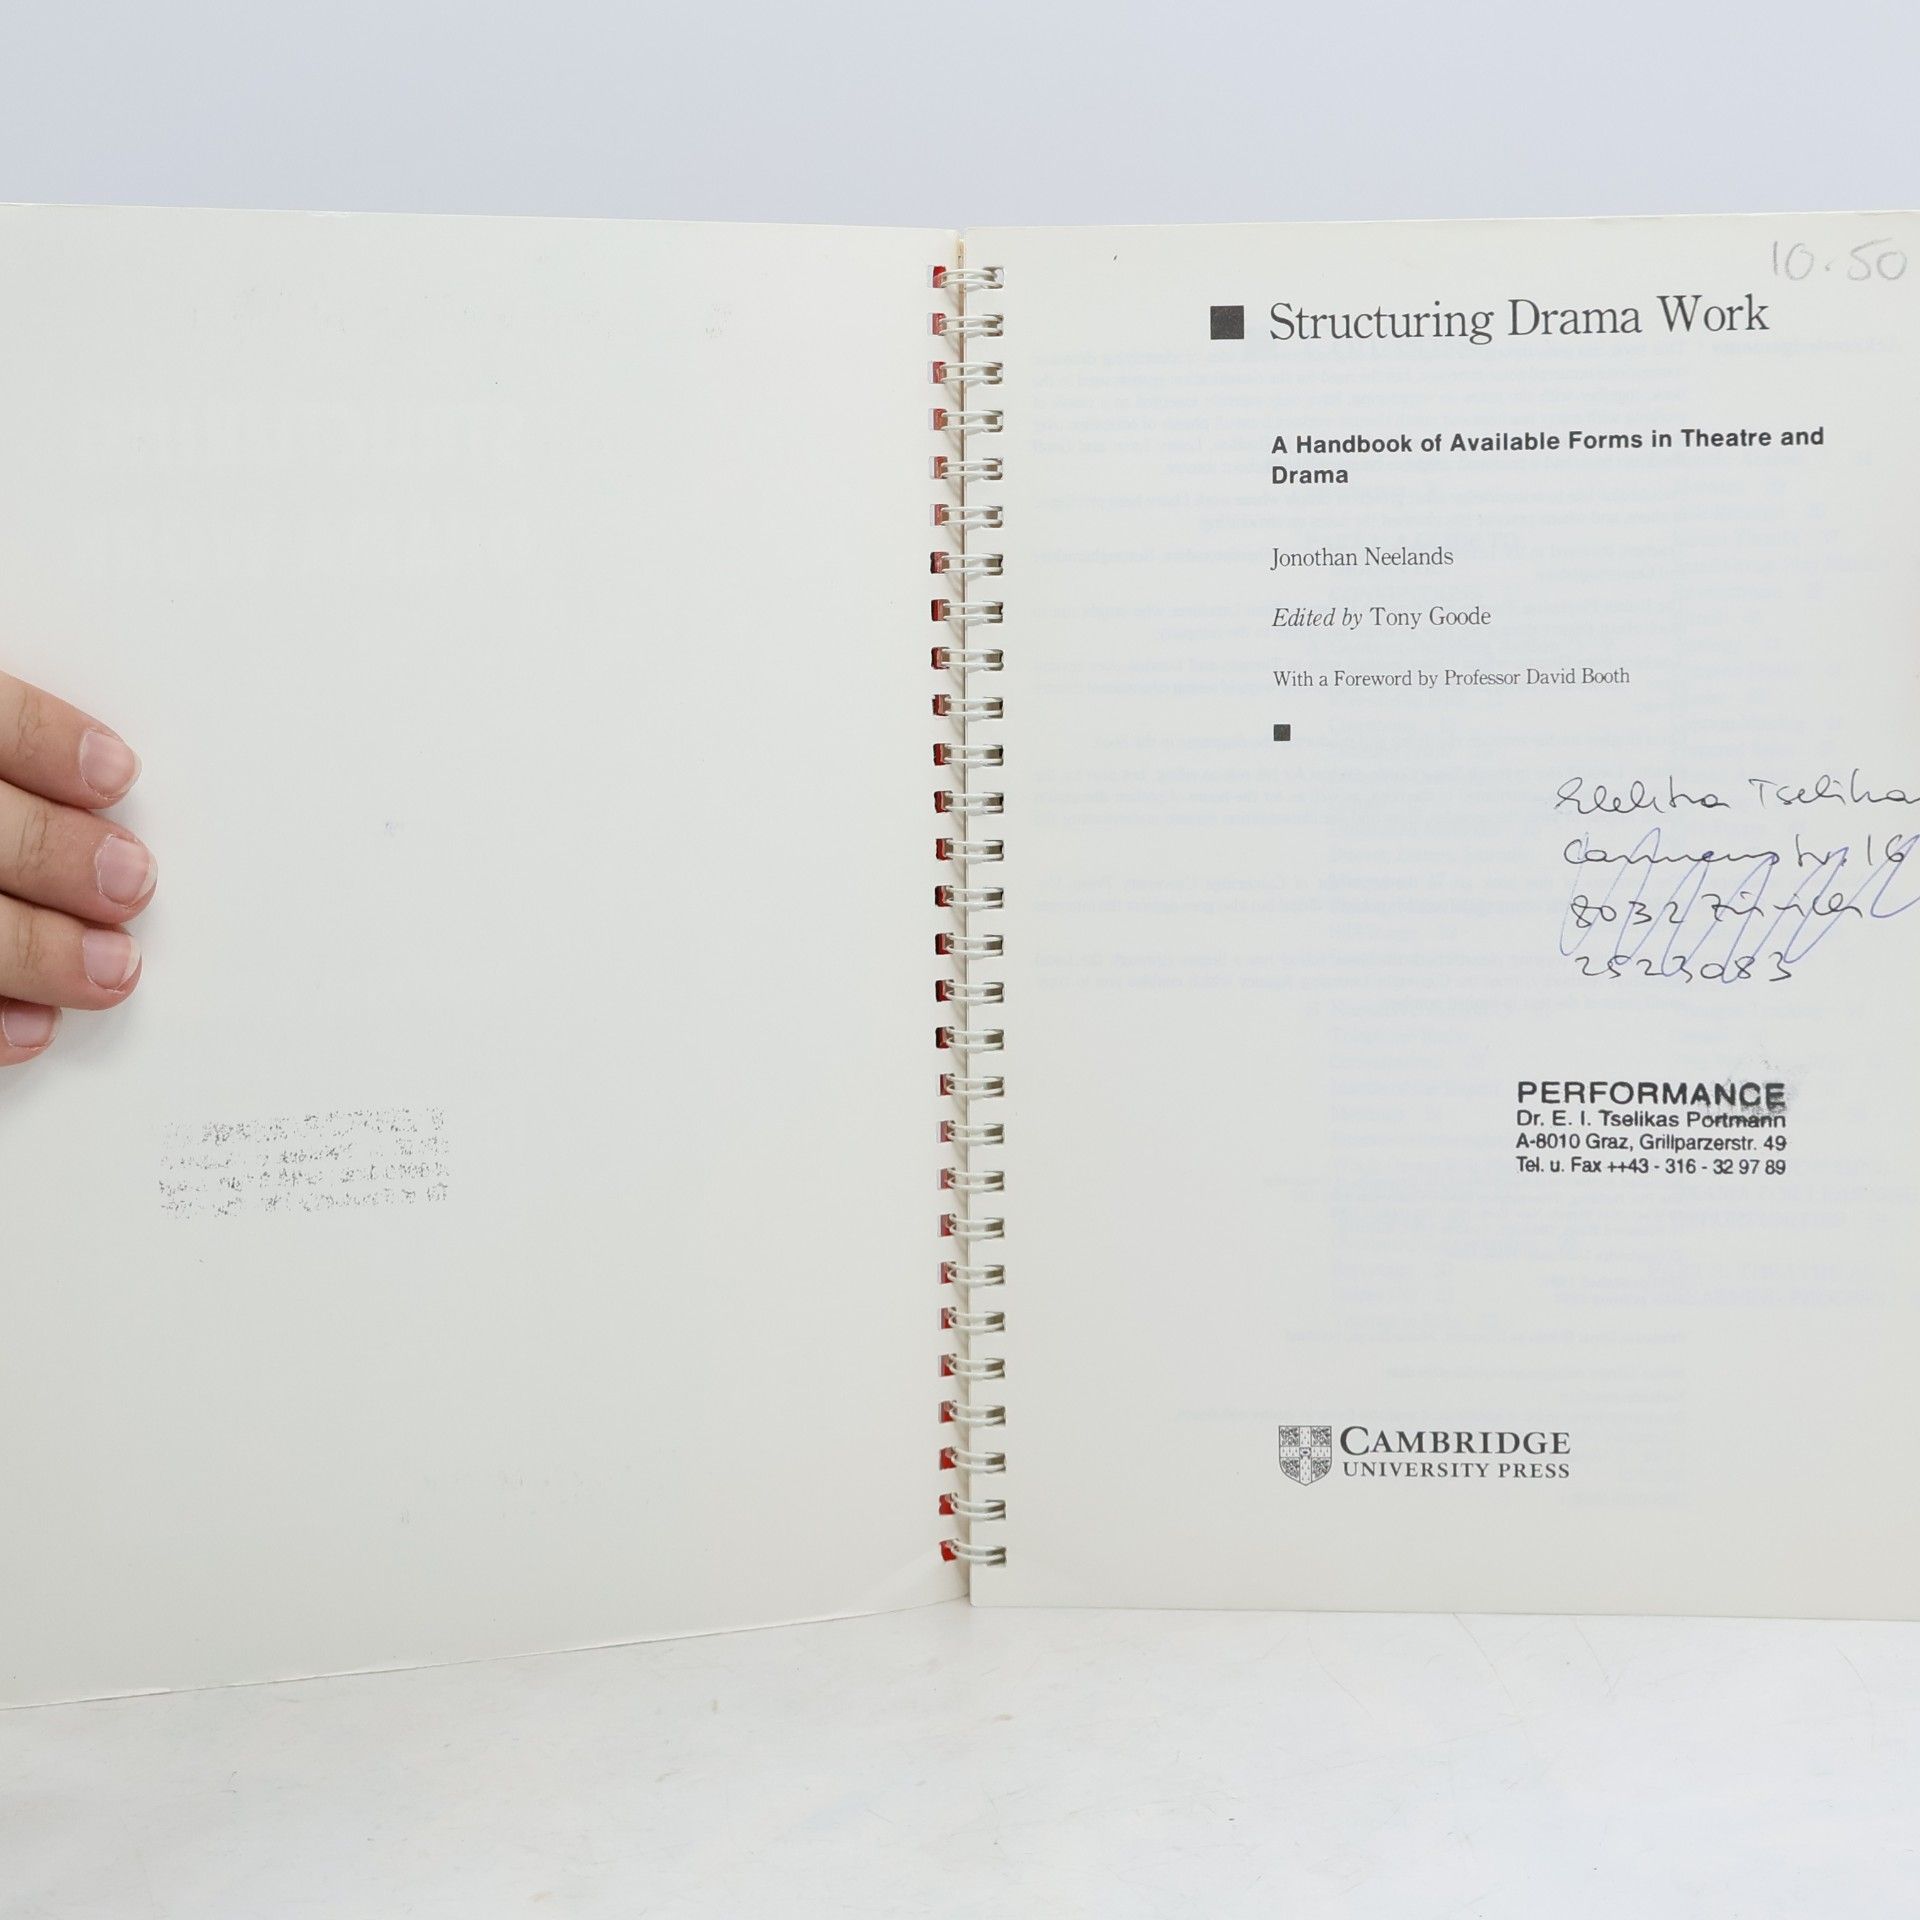 10.50
Structuring Drama Work
A Handbook of Available Forms in Theatre and
Drama
Jonothan Neelands
Edited by Tony Goode
With a Foreword by Professor David Booth
Tselika
16
8032 Zürich
2523083
PERFORMANCE
Dr. E. I. Tselikas Portmann
A-8010 Graz, Grillparzerstr. 49
Tel. u. Fax ++43 - 316 - 32 97 89
CAMBRIDGE
UNIVERSITY PRESS